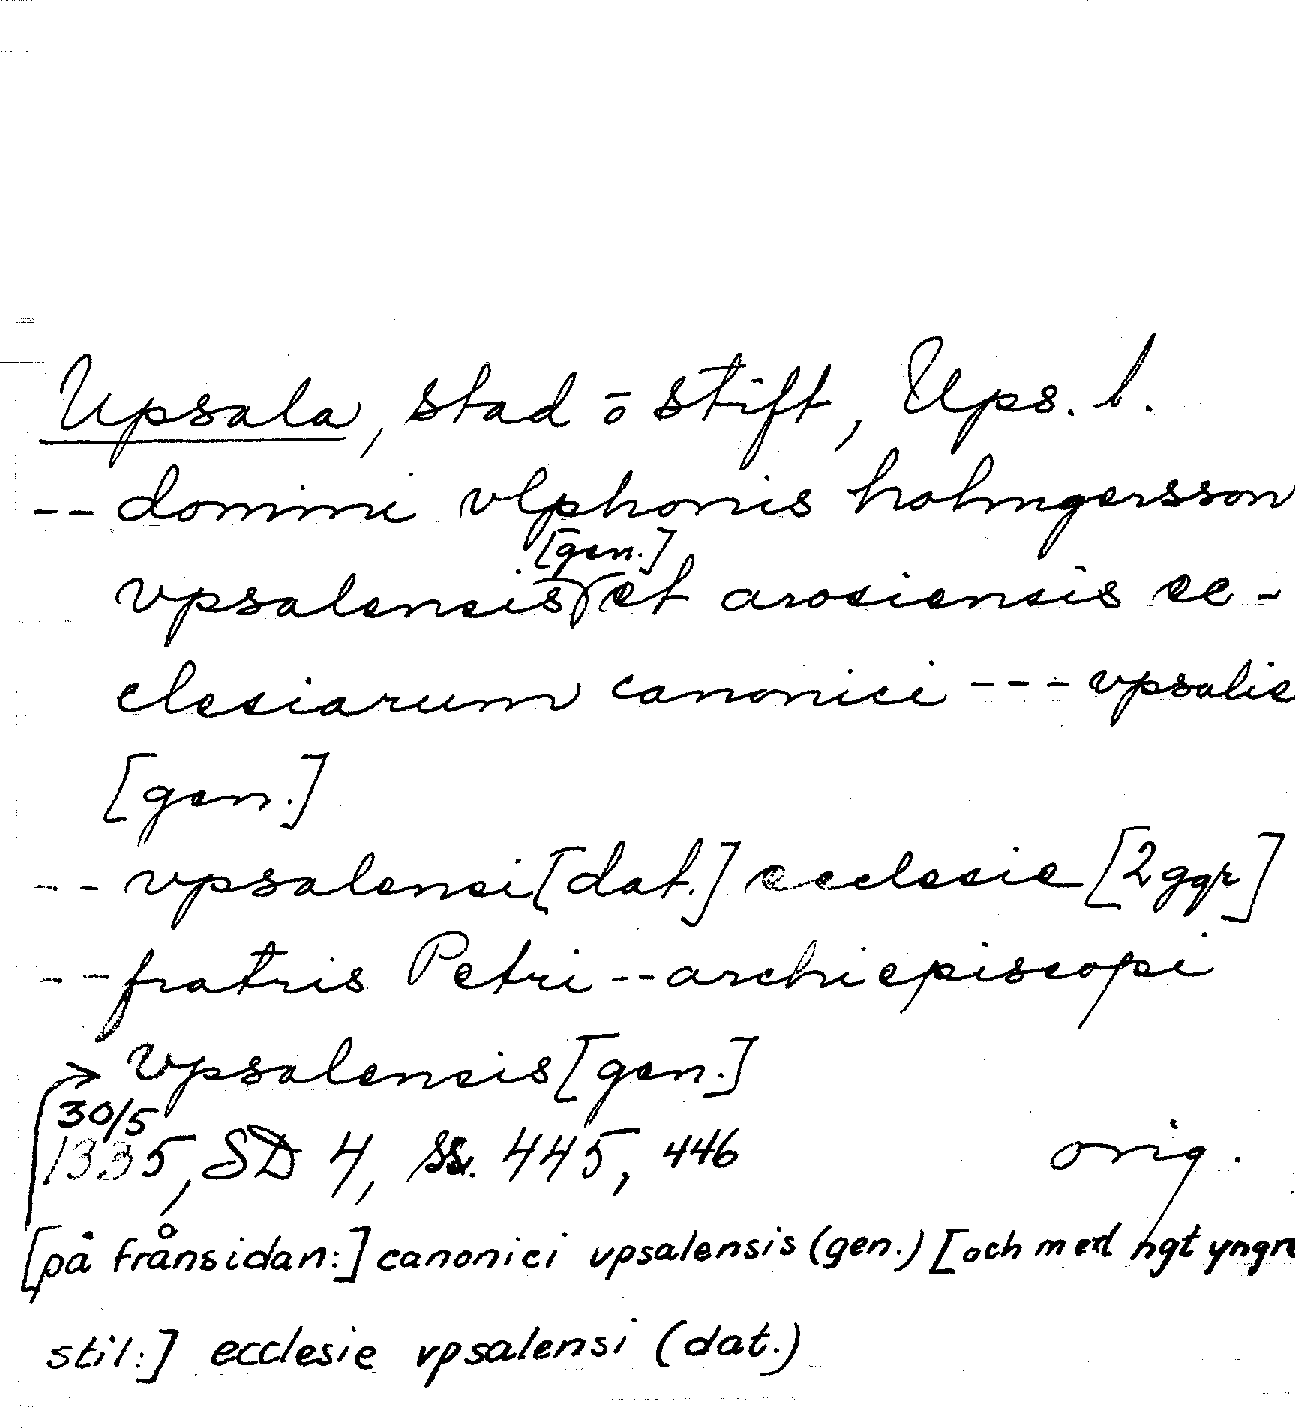 Upsala, stad o stift, Ups. l.
-- domini vlphonis holmgersson
[gen.]
vpsalensis et arosiensis ec-
clesiarum canonici --- vpsalie
[gen.]
-- vpsalensi [dat.] ecclesie [2 ggr]
-- fratris Petri -- archiepiscopi
vpsalensis [gen.]
30/5
1335, SD 4, ss. 445, 446 orig.
[på frånsidan:] canonici vpsalensis (gen.) [och med ngt yngre
stil:] ecclesie vpsalensi (dat.)